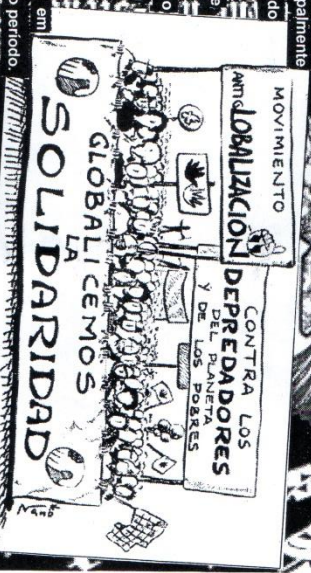 palmente
do
em
o período.
MOVIMIENTO
ANTIGLOBALIZACIÓN
CONTRA LOS
DEPREDADORES
DEL PLANETA
Y DE LOS POBRES
GLOBALICEMOS
LA
SOLIDARIDAD
Nano